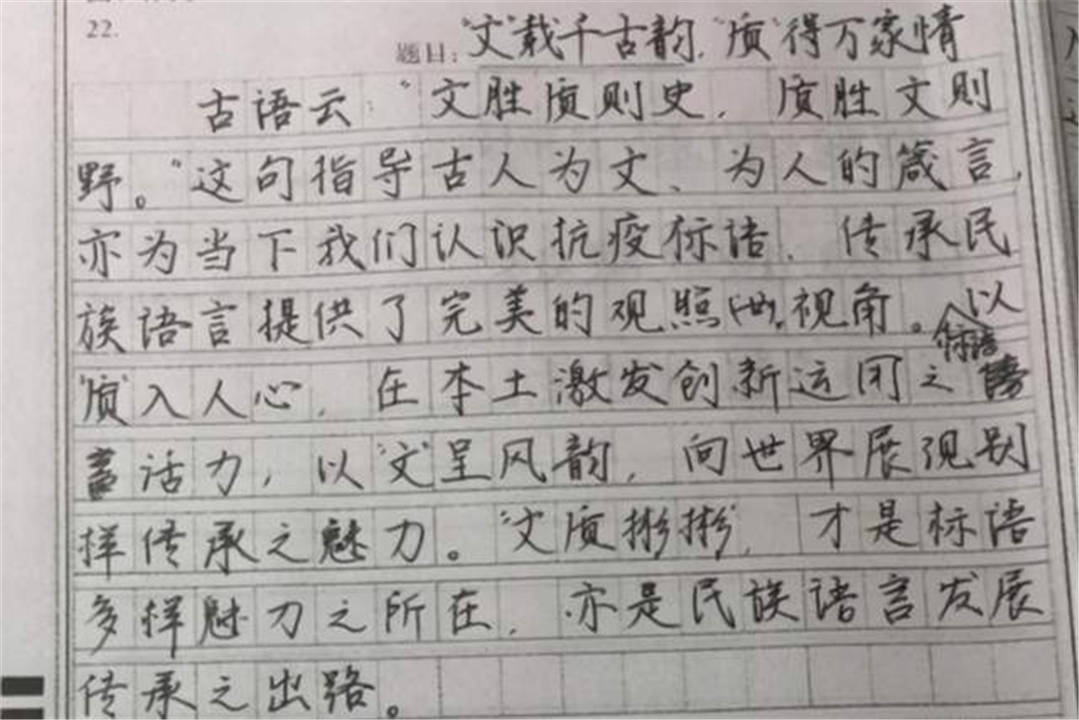 22.
题目:"文"载千古韵,"质"得万家情
古语云:"文胜质则史,质胜文则
野。"这句指导古人为文、为人的箴言,
亦为当下我们认识抗疫标语、传承民
族语言提供了完美的观照视角。以
标语
"质"入人心,在本土激发创新运用之
活力,以"文"呈风韵,向世界展现别
样传承之魅力。"文质彬彬",才是标语
多样魅力之所在,亦是民族语言发展
传承之出路。